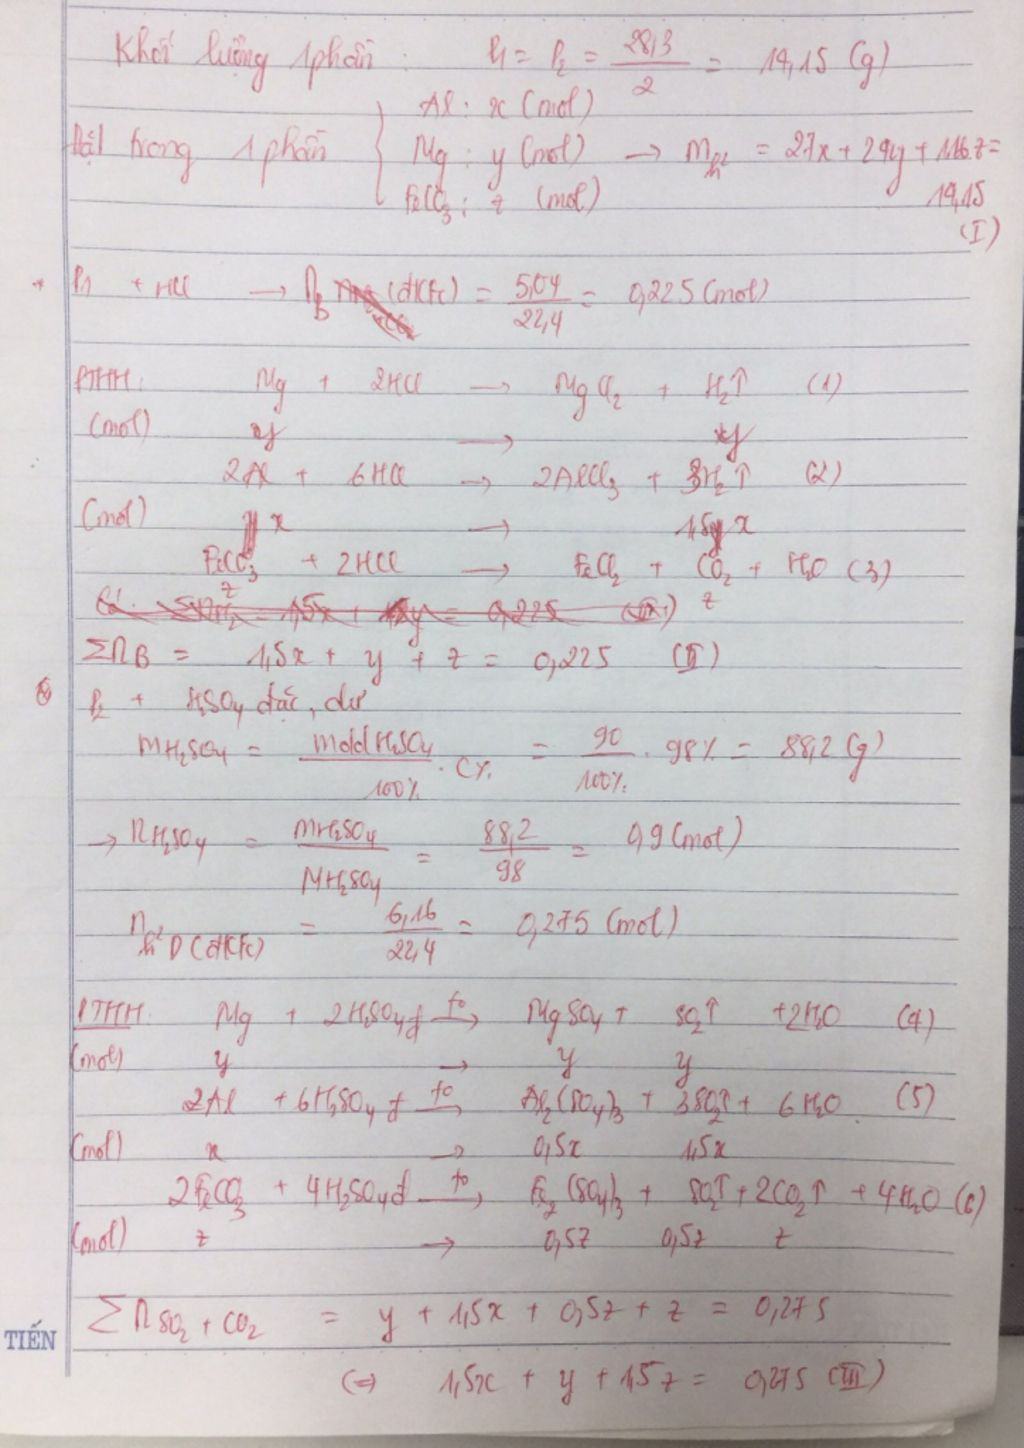 Khối lượng 1 phần : P1 = P2 = 28,3/2 = 14,15 (g)
Al : x (mol)
Đặt trong 1 phần { Mg : y (mol) → m hh = 27x + 24y + 116z =
FeCO3 : z (mol) 14,15
(I)
* P1 + HCl → n B (đktc) = 5,04/22,4 = 0,225 (mol)
PTHH: Mg + 2HCl → MgCl2 + H2↑ (1)
(mol) y → y
2Al + 6HCl → 2AlCl3 + 3H2↑ (2)
(mol) x → 1,5x
FeCO3 + 2HCl → FeCl2 + CO2 + H2O (3)
z z
ΣnB = 1,5x + y + z = 0,225 (II)
P2 + H2SO4 đặc, dư
mH2SO4 = mdd H2SO4/100% . C% = 90/100% . 98% = 88,2 (g)
→ nH2SO4 = mH2SO4/MH2SO4 = 88,2/98 = 0,9 (mol)
n hh D (đktc) = 6,16/22,4 = 0,275 (mol)
PTHH: Mg + 2H2SO4 đ t° → MgSO4 + SO2↑ + 2H2O (4)
(mol) y → y y
2Al + 6H2SO4 đ t° → Al2(SO4)3 + 3SO2↑ + 6H2O (5)
(mol) x → 0,5x 1,5x
2FeCO3 + 4H2SO4 đ t° → Fe2(SO4)3 + SO2↑ + 2CO2↑ + 4H2O (6)
(mol) z → 0,5z 0,5z z
Σn SO2 + CO2 = y + 1,5x + 0,5z + z = 0,275
TIẾN
(=) 1,5x + y + 1,5z = 0,275 (III)